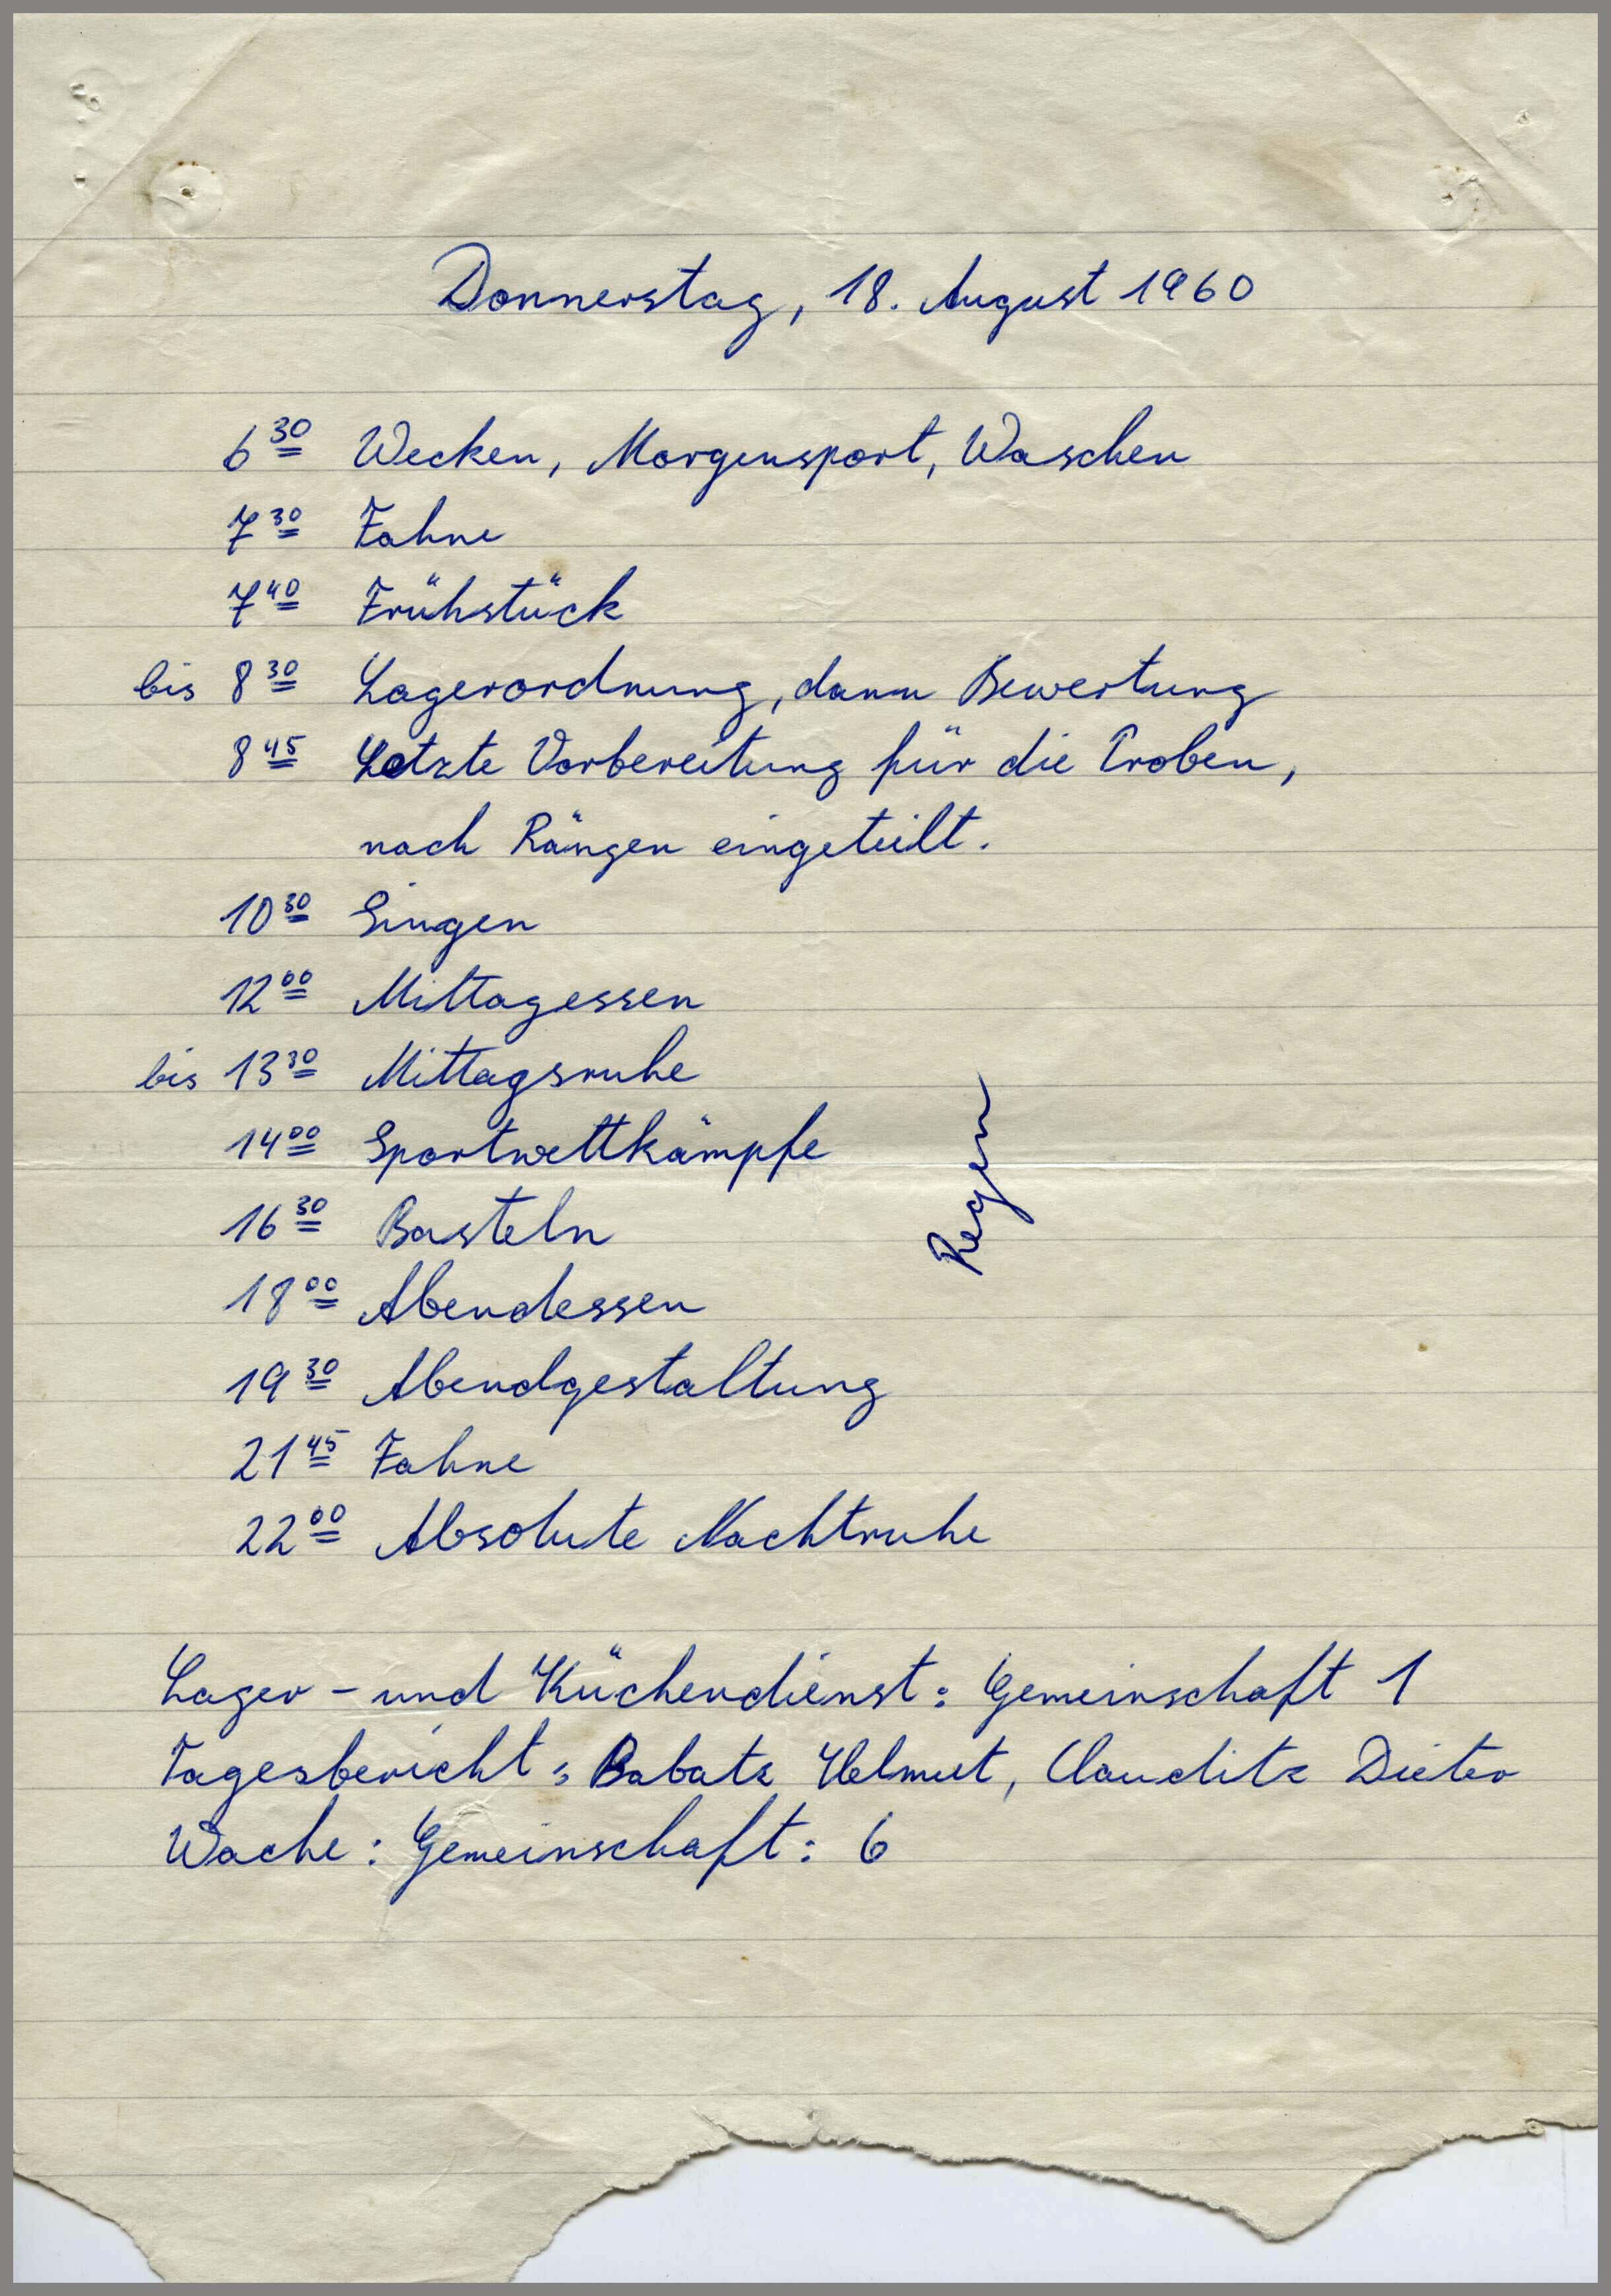 Donnerstag, 18. August 1960
6 30 Wecken, Morgensport, Waschen
7 30 Fahne
7 40 Frühstück
bis 8 30 Lagerordnung, dann Bewertung
8 45 Letzte Vorbereitung für die Proben,
nach Rängen eingeteilt.
10 30 Singen
12 00 Mittagessen
bis 13 30 Mittagsruhe
14 00 Sportwettkämpfe
Regen
16 30 Basteln
18 00 Abendessen
19 30 Abendgestaltung
21 45 Fahne
22 00 Absolute Nachtruhe
Lager- und Küchendienst: Gemeinschaft 1
Tagesbericht: Babatz Helmut, Clauditz Dieter
Wache: Gemeinschaft: 6